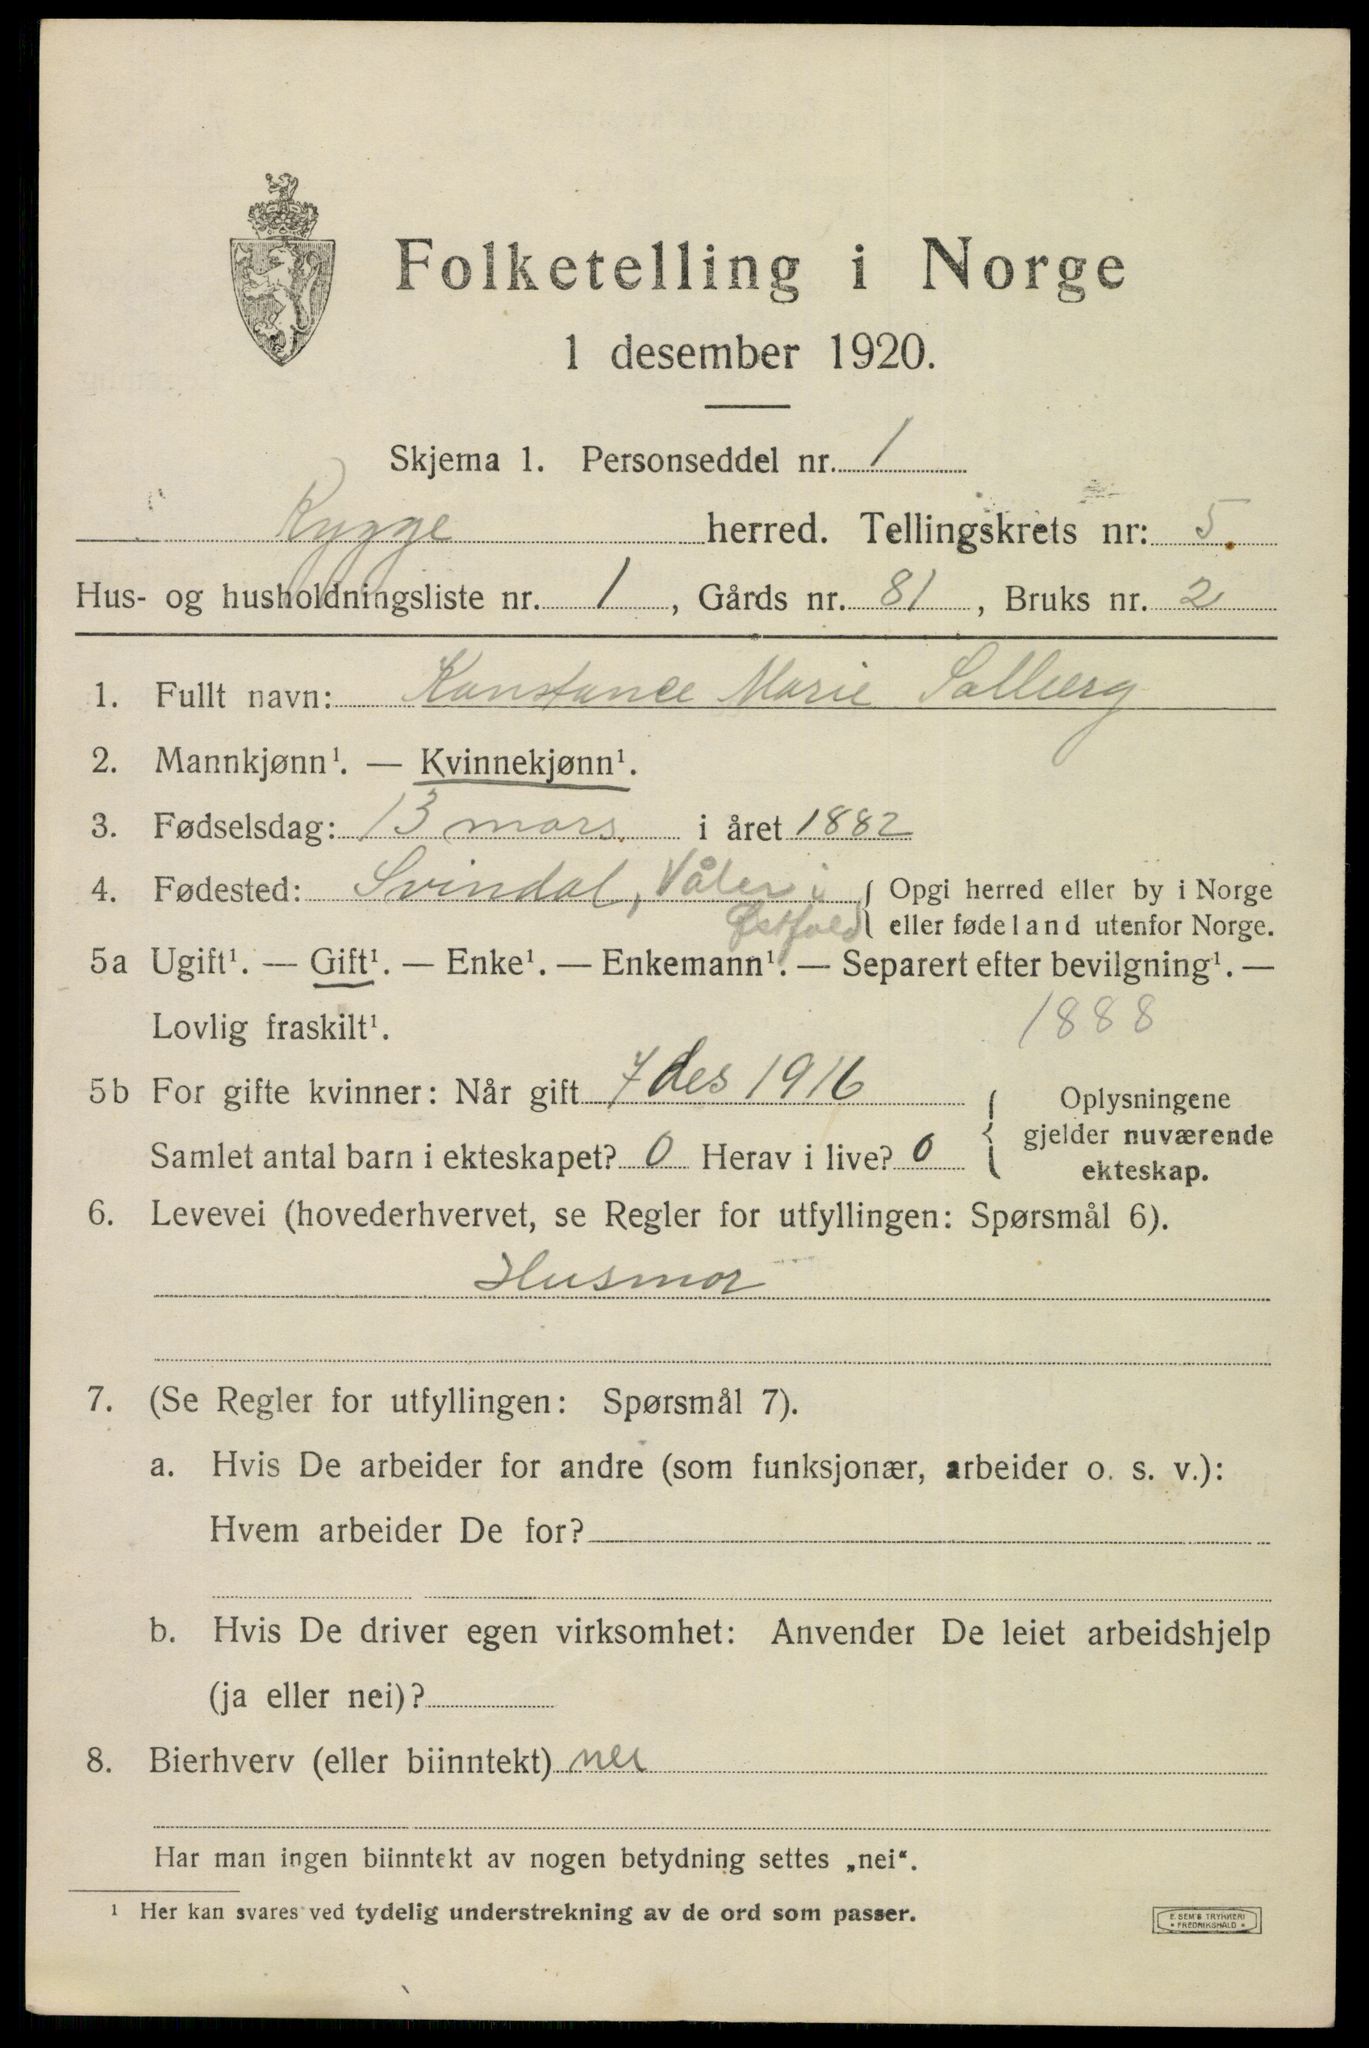 Folketelling i Norge
1 desember 1920.
Skjema 1. Personseddel nr. 1
Rygge herred. Tellingskrets nr: 5.
Hus- og husholdningsliste nr. 1, Gårds nr. 81, Bruks nr. 2
1. Fullt navn: Konstance Marie Solberg
2. Mannkjønn¹. — Kvinnekjønn¹.
3. Fødselsdag: 13 mars. i året 1882
4. Fødested: Svindal, Våler i { Opgi herred eller by i Norge
Østfold { eller fødeland utenfor Norge.
5a Ugift¹. — Gift¹. — Enke¹. — Enkemann¹. — Separert efter bevilgning¹. —
Lovlig fraskilt¹. 1888
5b For gifte kvinner: Når gift 7 des 1916 { Oplysningene
Samlet antal barn i ekteskapet? 0 Herav i live? 0 { gjelder nuværende
ekteskap.
6. Levevei (hovederhvervet, se Regler for utfyllingen: Spørsmål 6).
Husmor
7. (Se Regler for utfyllingen: Spørsmål 7).
a. Hvis De arbeider for andre (som funksjonær, arbeider o. s. v.):
Hvem arbeider De for?
b. Hvis De driver egen virksomhet: Anvender De leiet arbeidshjelp
(ja eller nei)?
8. Bierhverv (eller biinntekt) nei
Har man ingen biinntekt av nogen betydning settes „nei“.
¹ Her kan svares ved tydelig understrekning av de ord som passer.
E SEM'S TRYKKERI
* FREDRIKSHALD *